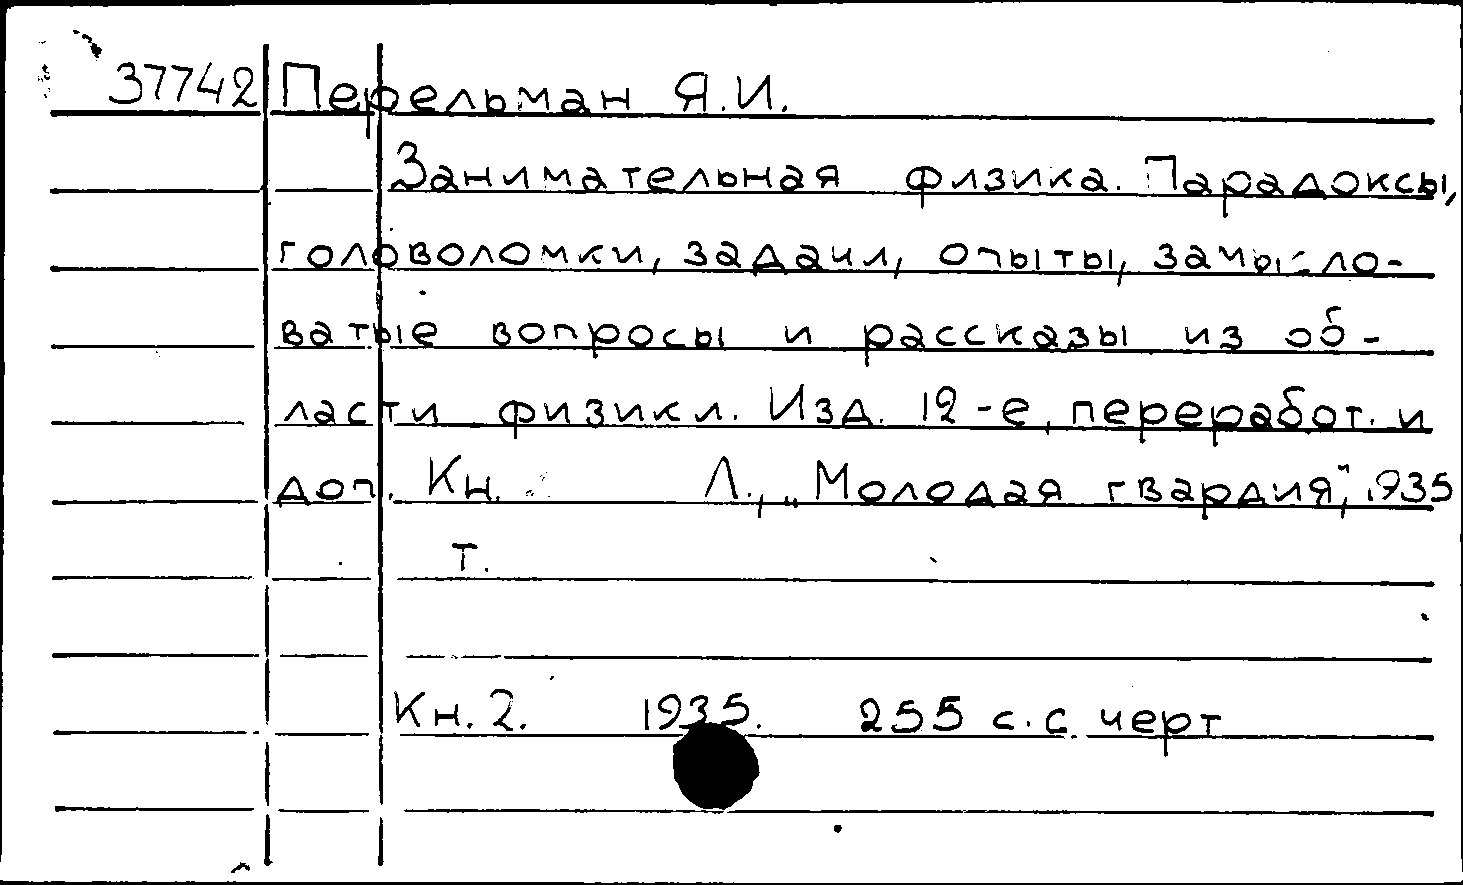 37742 Перельман Я.И.
Занимательная физика. Парадоксы,
головоломки, задачи, опыты, замысло-
ватые вопросы и рассказы из об-
ласти физики. Изд. 12-е, переработ. и
доп. Кн. Л., „Молодая гвардия", 1935
т.
Кн. 2. 1935. 255 с. с черт